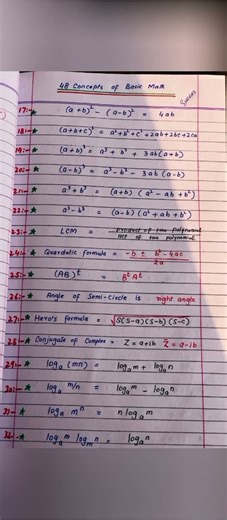 48 Concepts of Basic Math
17:- ★ (a+b)² - (a-b)² = 4ab
18:- ★ (a+b+c)² = a²+b²+c²+2ab+2bc+2ca
19:- ★ (a+b)³ = a³ + b³ + 3ab(a+b)
20:- ★ (a-b)³ = a³ - b³ - 3ab(a-b)
21:- ★ a³+b³ = (a+b) (a² - ab + b²)
22:- ★ a³-b³ = (a-b) (a²+ab+b²)
23:- ★ LCM = Product of two polynomial / HCF of two polynomial
24:- ★ Quardatic formula = -b ± b²-4ac / 2a
25:- ★ (AB)ᵗ = BᵗAᵗ
26:- ★ Angle of Semi-Circle is right angle
27:- ★ Hero's formula = √S(S-a)(S-b)(S-c)
28:- ★ Conjugate of Complex = Z = a+ib Z̅ = a-ib
29:- ★ logₐ(mn) = logₐm + logₐn
30:- ★ logₐ m/n = logₐm - logₐn
31:- ★ logₐ mⁿ = n logₐm
32:- ★ logₐm logₘn = logₐn